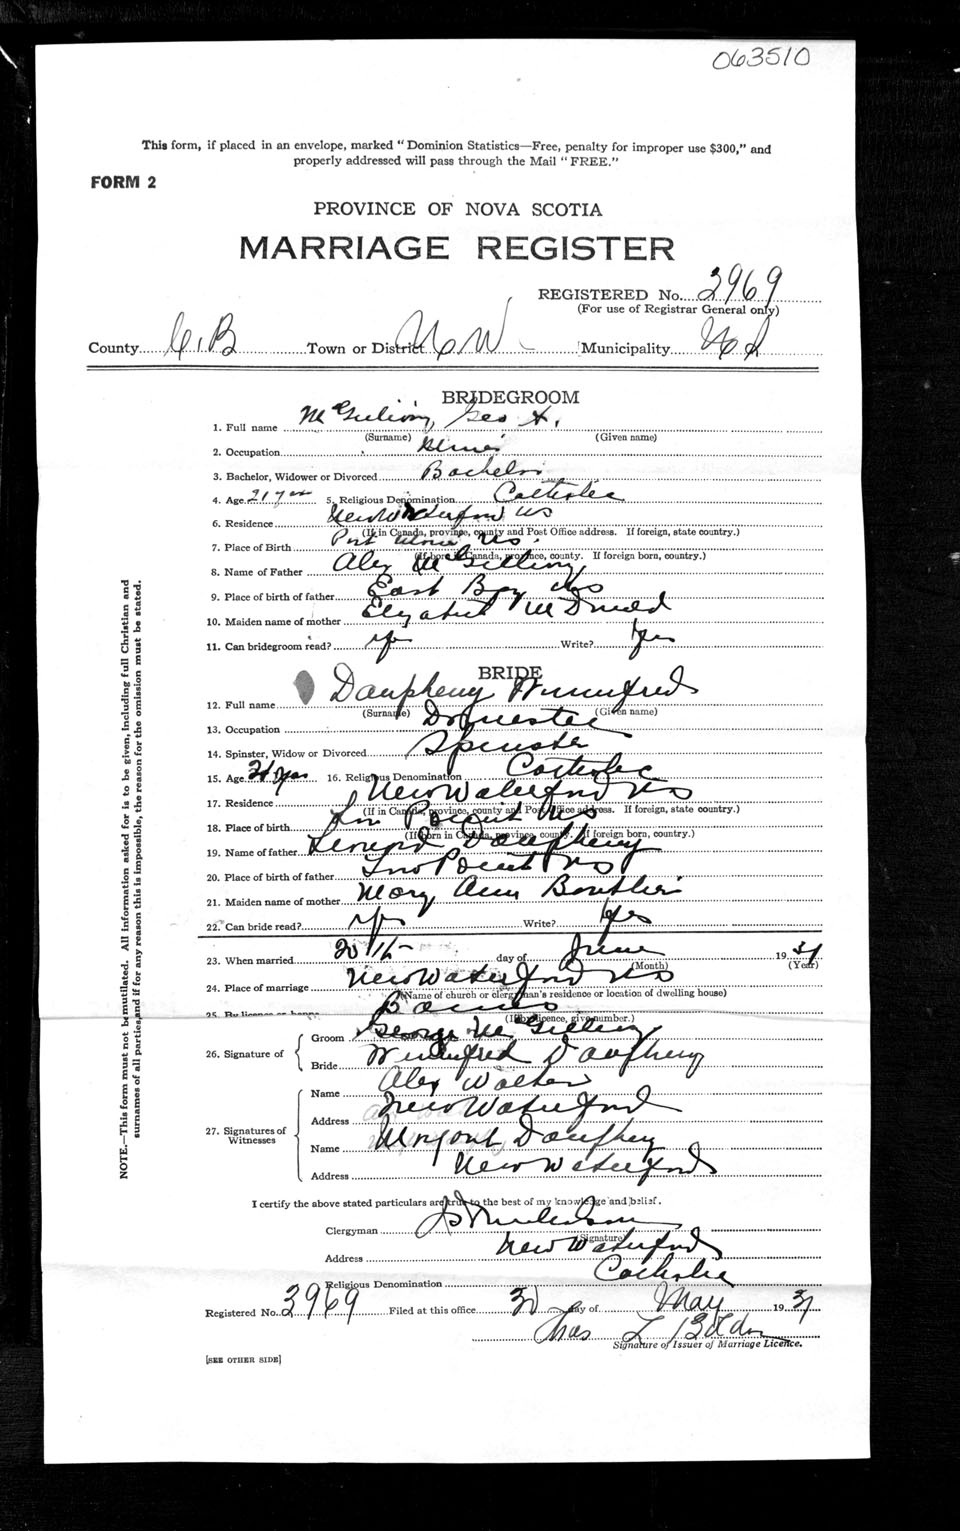 063510
This form, if placed in an envelope, marked "Dominion Statistics—Free, penalty for improper use $300," and
properly addressed will pass through the Mail "FREE."
FORM 2
PROVINCE OF NOVA SCOTIA
MARRIAGE REGISTER
REGISTERED No. 3969
(For use of Registrar General only)
County C.B Town or District N W Municipality
BRIDEGROOM
1. Full name Geo
(Surname) (Given name)
2. Occupation
3. Bachelor, Widower or Divorced Bachelor
4. Age 21 yrs 5. Religious Denomination Catholic
6. Residence New Waterford NS
(If in Canada, province, county and Post Office address. If foreign, state country.)
7. Place of Birth Port NS
(If born in Canada, province, county. If foreign born, country.)
8. Name of Father Alex
9. Place of birth of father East Bay NS
10. Maiden name of mother
11. Can bridegroom read? yes Write? yes
BRIDE
12. Full name Daupheny Winnifred
(Surname) (Given name)
13. Occupation Domestic
14. Spinster, Widow or Divorced Spinster
15. Age 21 yrs 16. Religious Denomination Catholic
17. Residence New Waterford NS
(If in Canada, province, county and Post Office address. If foreign, state country.)
18. Place of birth
(If born in Canada, province, county. If foreign born, country.)
19. Name of father Daupheny
20. Place of birth of father Point NS
21. Maiden name of mother Mary Ann
22. Can bride read? yes Write? yes
23. When married 20th day of June 19
(Month) (Year)
24. Place of marriage New Waterford NS
(Name of church or clergyman's residence or location of dwelling house)
25. By licence or banns Banns
(If by licence, give number.)
26. Signature of
Groom George
Bride Winnifred Daupheny
27. Signatures of Witnesses
Name Alex
Address New Waterford
Name Daupheny
Address New Waterford
I certify the above stated particulars are true to the best of my knowledge and belief.
Clergyman
(Signature)
Address New Waterford
Religious Denomination Catholic
Registered No. 3969 Filed at this office day of May 19
Chas
Signature of Issuer of Marriage Licence.
[SEE OTHER SIDE]
NOTE.—This form must not be mutilated. All information asked for is to be given, including full Christian and
surnames of all parties, and if for any reason this is impossible, the reason for the omission must be stated.